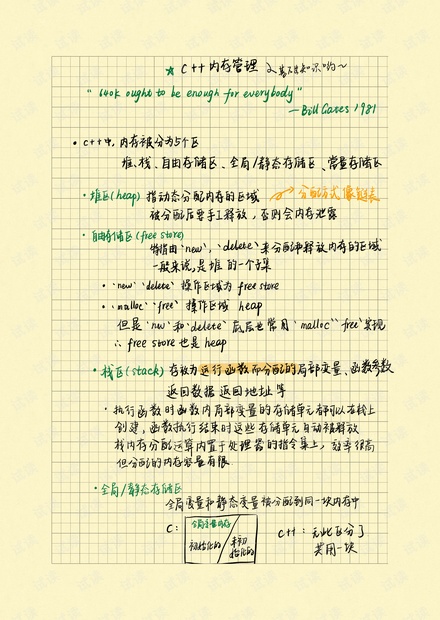 ★ C++内存管理 基本知识哟~
"640k ought to be enough for everybody"
—Bill Gates 1981
• C++中，内存被分为5个区
堆、栈、自由存储区、全局/静态存储区、常量存储区
• 堆区(heap) 指动态分配内存的区域 分配方式像链表
被分配后要手工释放，否则会内存泄露
• 自由存储区(free store)
特指由`new`,`delete`来分配和释放内存的区域
一般来说,是堆的一个子集
• `new` `delete` 操作区域为 free store
• `malloc` `free` 操作区域 heap
但是`new`和`delete`底层也常用`malloc` `free`实现
∴ free store 也是 heap
• 栈区(stack) 存放为运行函数而分配的局部变量、函数参数
返回数据 返回地址 等
• 执行函数时函数内局部变量的存储单元都可以在栈上
创建，函数执行结束时这些存储单元自动被释放
栈内存分配运算内置于处理器的指令集上，效率很高
但分配的内存容量有限
• 全局/静态存储区
全局变量和静态变量被分配到同一块内存中
C: 全局变量内存 C++: 无此区分了
初始化的 / 未初始化的 共用一块